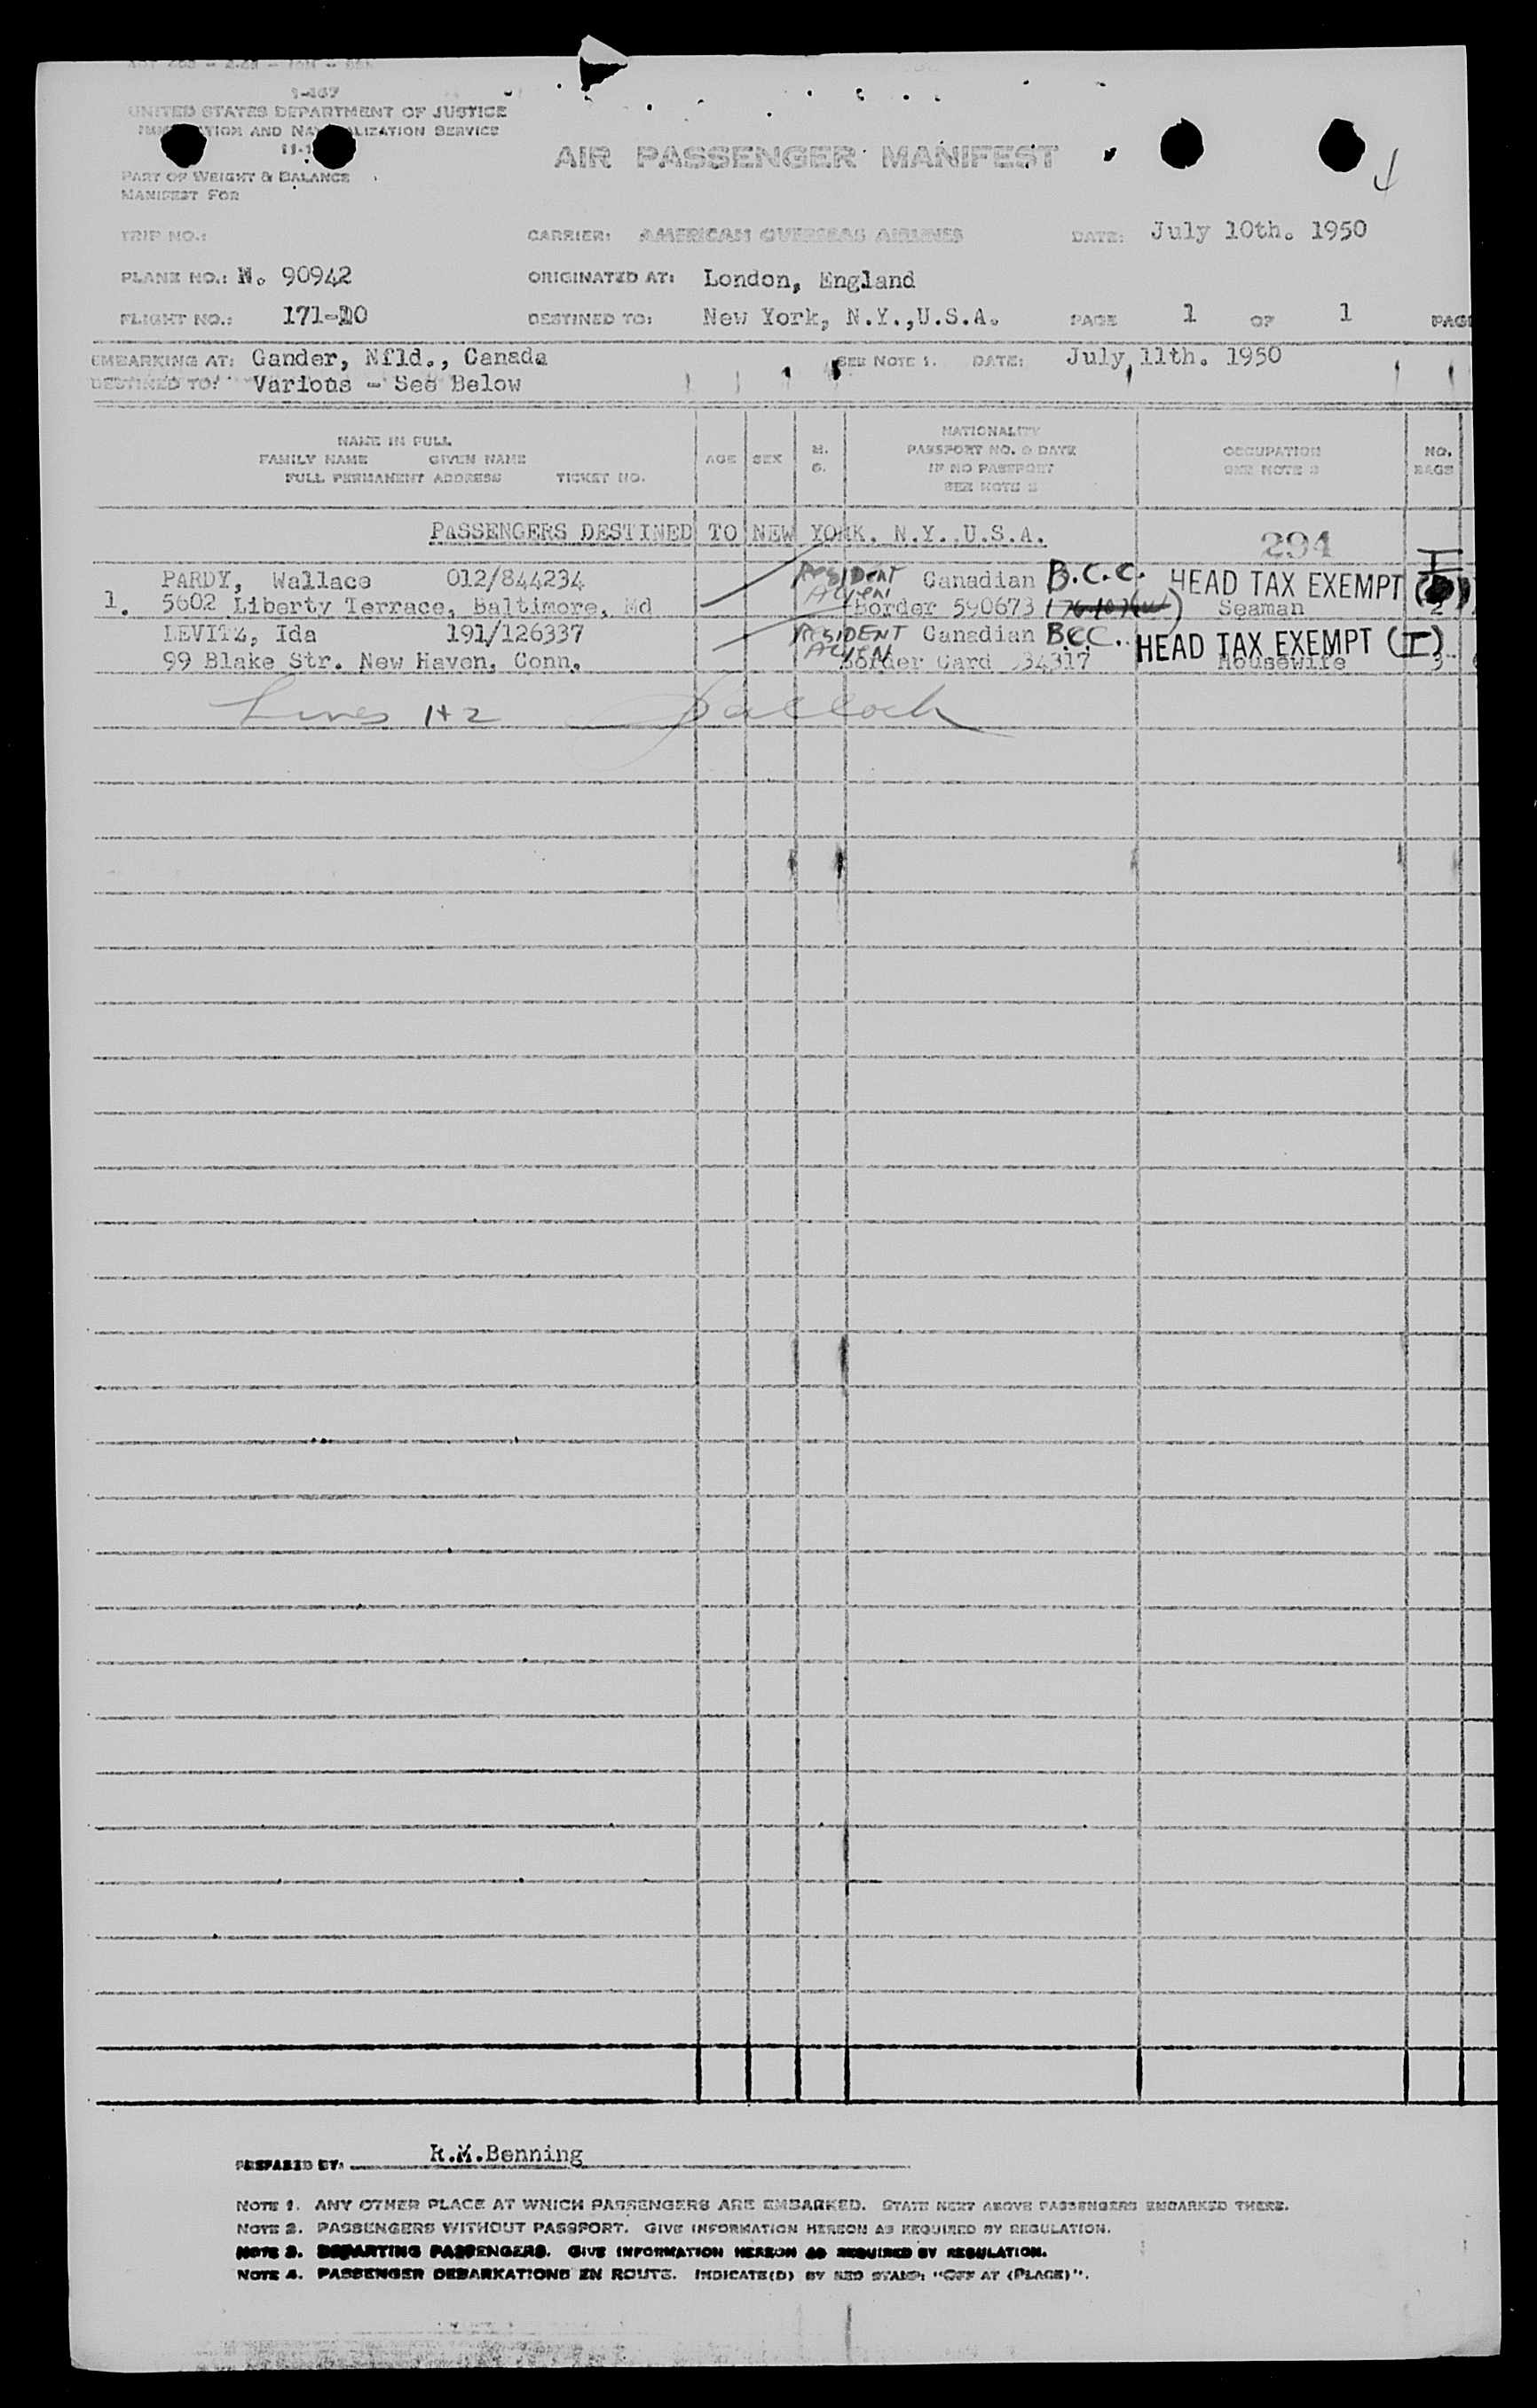 1-467
UNITED STATES DEPARTMENT OF JUSTICE
AND SERVICE
PART OF WEIGHT & BALANCE
MANIFEST FOR
AIR PASSENGER MANIFEST
TRIP NO.:
CARRIER: AMERICAN OVERSEAS AIRLINES
DATE: July 10th. 1950
PLANE NO.: N. 90942
ORIGINATED AT: London, England
FLIGHT NO.: 171-10
DESTINED TO: New York, N.Y.,U.S.A.
PAGE 1 OF 1 PAGE
EMBARKING AT: Gander, Nfld., Canada
SEE NOTE 1. DATE: July,11th. 1950
DESTINED TO: Various - See Below
NAME IN FULL
FAMILY NAME GIVEN NAME
FULL PERMANENT ADDRESS TICKET NO.
AGE
SEX
M.
S.
NATIONALITY
PASSPORT NO. & DATE
IF NO PASSPORT
SEE NOTE 2
OCCUPATION
SEE NOTE 3
NO.
BAGS
PASSENGERS DESTINED TO NEW YORK. N.Y..U.S.A.
294
PARDY, Wallace 012/844234 RESIDENT ALIEN Canadian B.C.C. HEAD TAX EXEMPT I
1. 5602 Liberty Terrace, Baltimore, Md Border 590673 Seaman 2
LEVITZ, Ida 191/126337 RESIDENT ALIEN Canadian B.C.C. HEAD TAX EXEMPT (I)
99 Blake Str. New Haven. Conn. Border Card 34317 Housewife 3
Lines 1+2
PREPARED BY: R.M.Benning
NOTE 1. ANY OTHER PLACE AT WHICH PASSENGERS ARE EMBARKED. STATE NEXT ABOVE PASSENGERS EMBARKED THERE.
NOTE 2. PASSENGERS WITHOUT PASSPORT. GIVE INFORMATION HEREON AS REQUIRED BY REGULATION.
NOTE 3. DEPARTING PASSENGERS. GIVE INFORMATION HEREON AS REQUIRED BY REGULATION.
NOTE 4. PASSENGER DEBARKATIONS EN ROUTE. INDICATE(D) BY RED STAMP: "OFF AT (PLACE)".